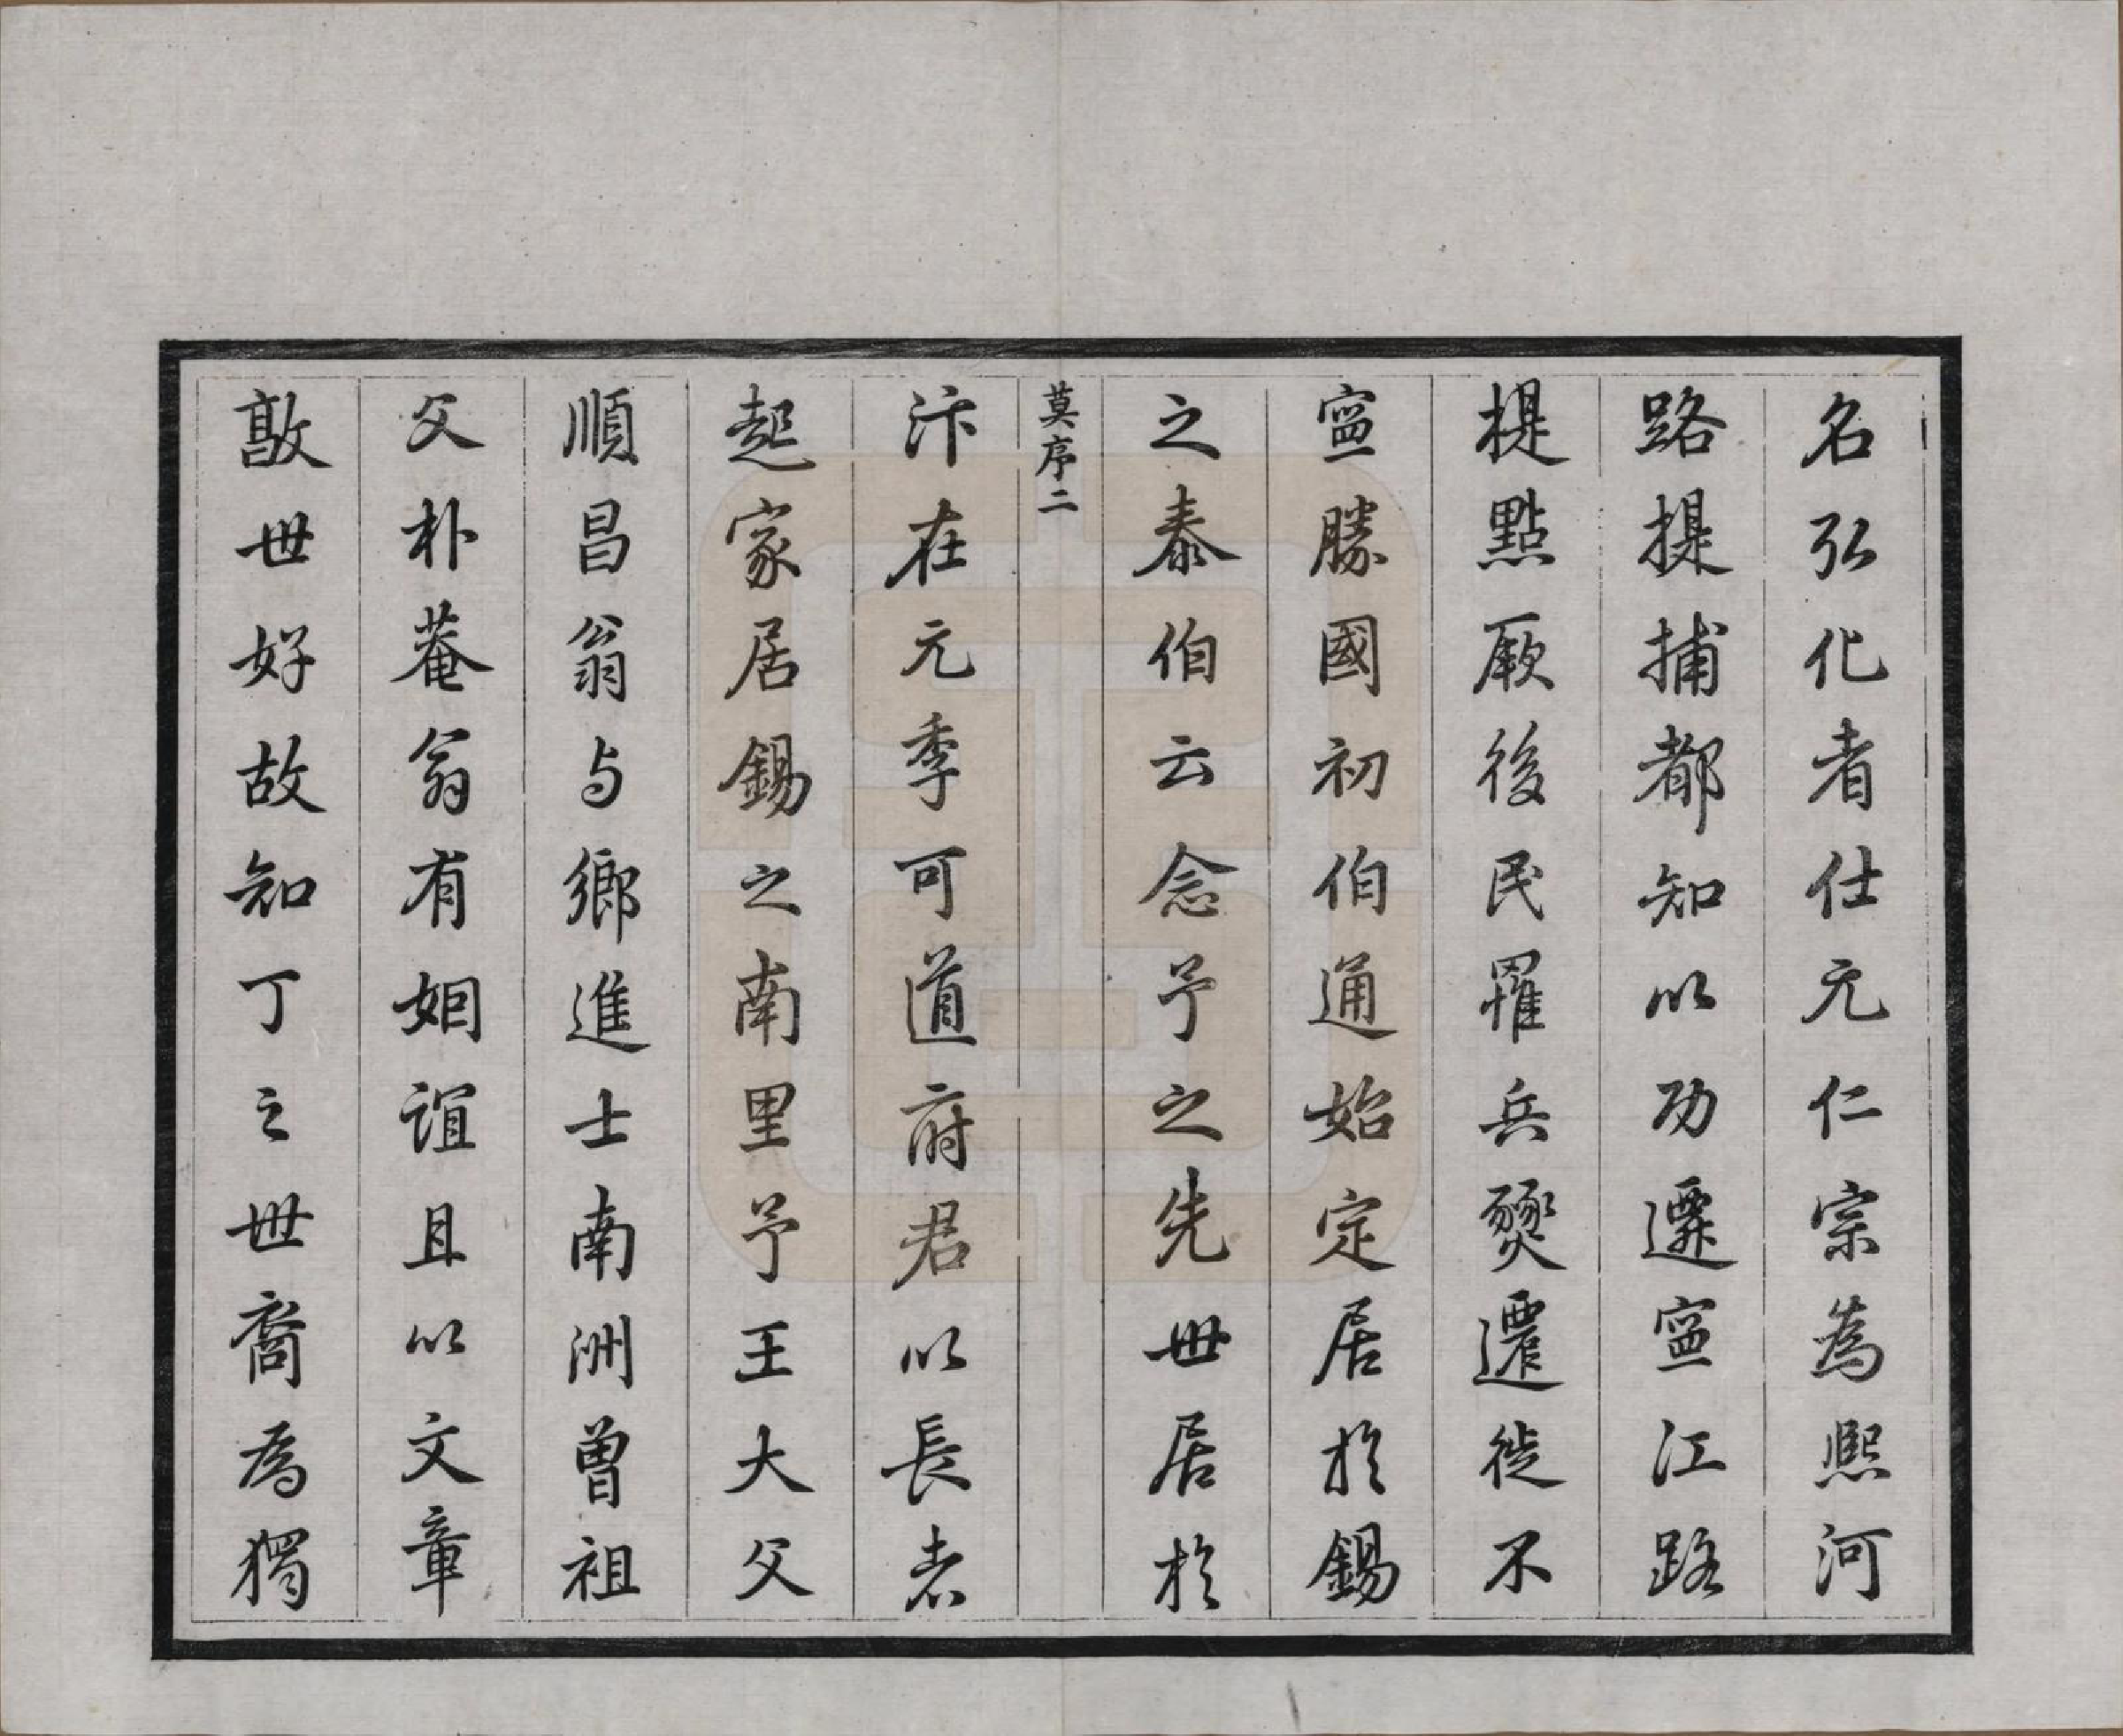 名弘化者仕元仁宗為熙河
路提捕都知以功遷寍江路
提點厥後民罹兵燹遷徙不
寍勝國初伯通始定居於錫
之泰伯云念予之先世居於
莫序二
汴在元季可道府君以長者
起家居錫之南里予王大父
順昌翁与鄉進士南洲曾祖
父朴菴翁有姻誼且以文章
敦世好故知丁之世裔為獨